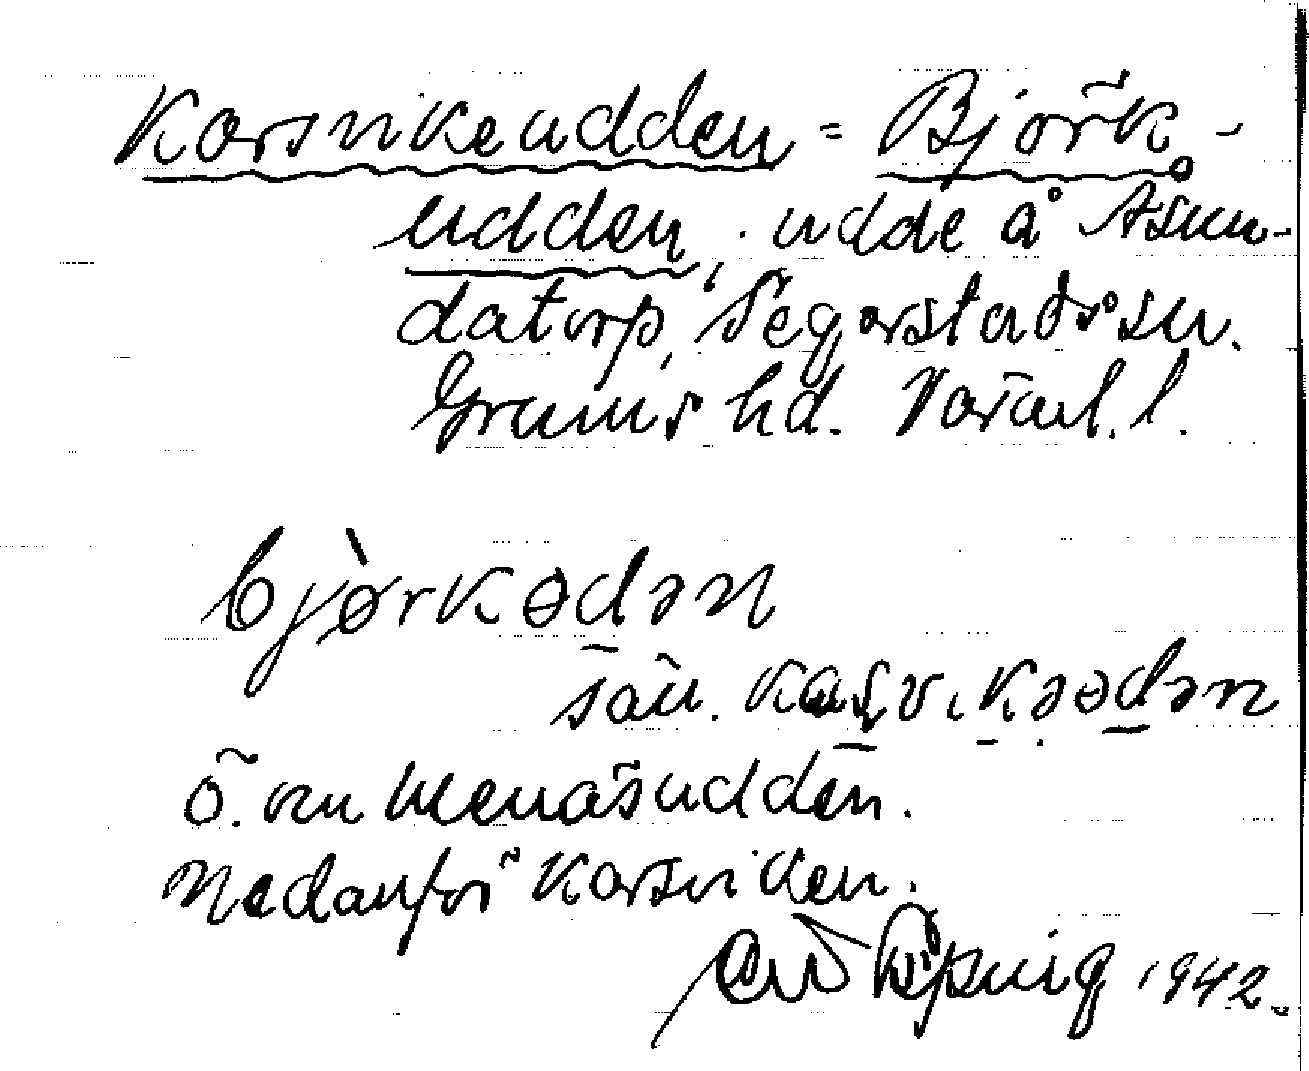 Korsvikeudden = Björk-
udden, udde å Åsun-
datorp, Segerstads sn.
Grums hd. Värml. l.
bjørkɵdən
sän. kaʂvikəɵdən
Ö. om Menäsudden.
Nedanför Korsviken.
1942.